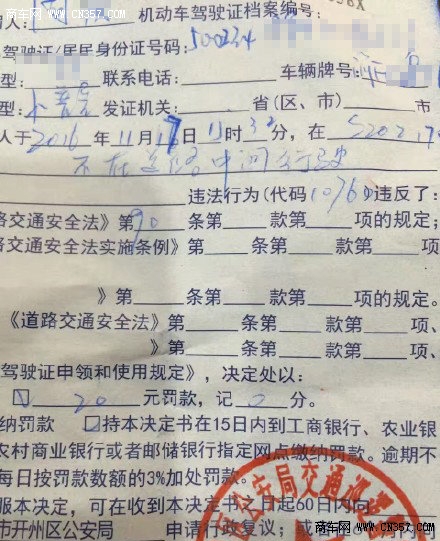 商车人 www.CN357.com
人: 机动车驾驶证档案编号:
驾驶证/居民身份证号码:500234
型: 联系电话: 车辆牌号:
型: 小 发证机关: 省(区、市) 市
人于2016年11月17日11时32分,在S202,17
不在道路中间行驶
违法行为(代码10760)违反了:
路交通安全法》第90条第 款第 项的规定;
交通安全法实施条例》第 条第 款第 项
》第 条第 款第 项的规定。
《道路交通安全法》第 条第 款第 项、
》第 条第 款第 项、
驾驶证申领和使用规定》,决定处以:
20元罚款,记 分。
纳罚款 ☑持本决定书在15日内到工商银行、农业银
农村商业银行或者邮储银行指定网点缴纳罚款。逾期不
每日按罚款数额的3%加处罚款。
服本决定,可在收到本决定书之日起60日内向
市开州区公安局 申请行政复议;或
公安局交通巡逻
商车网 www.CN357.com